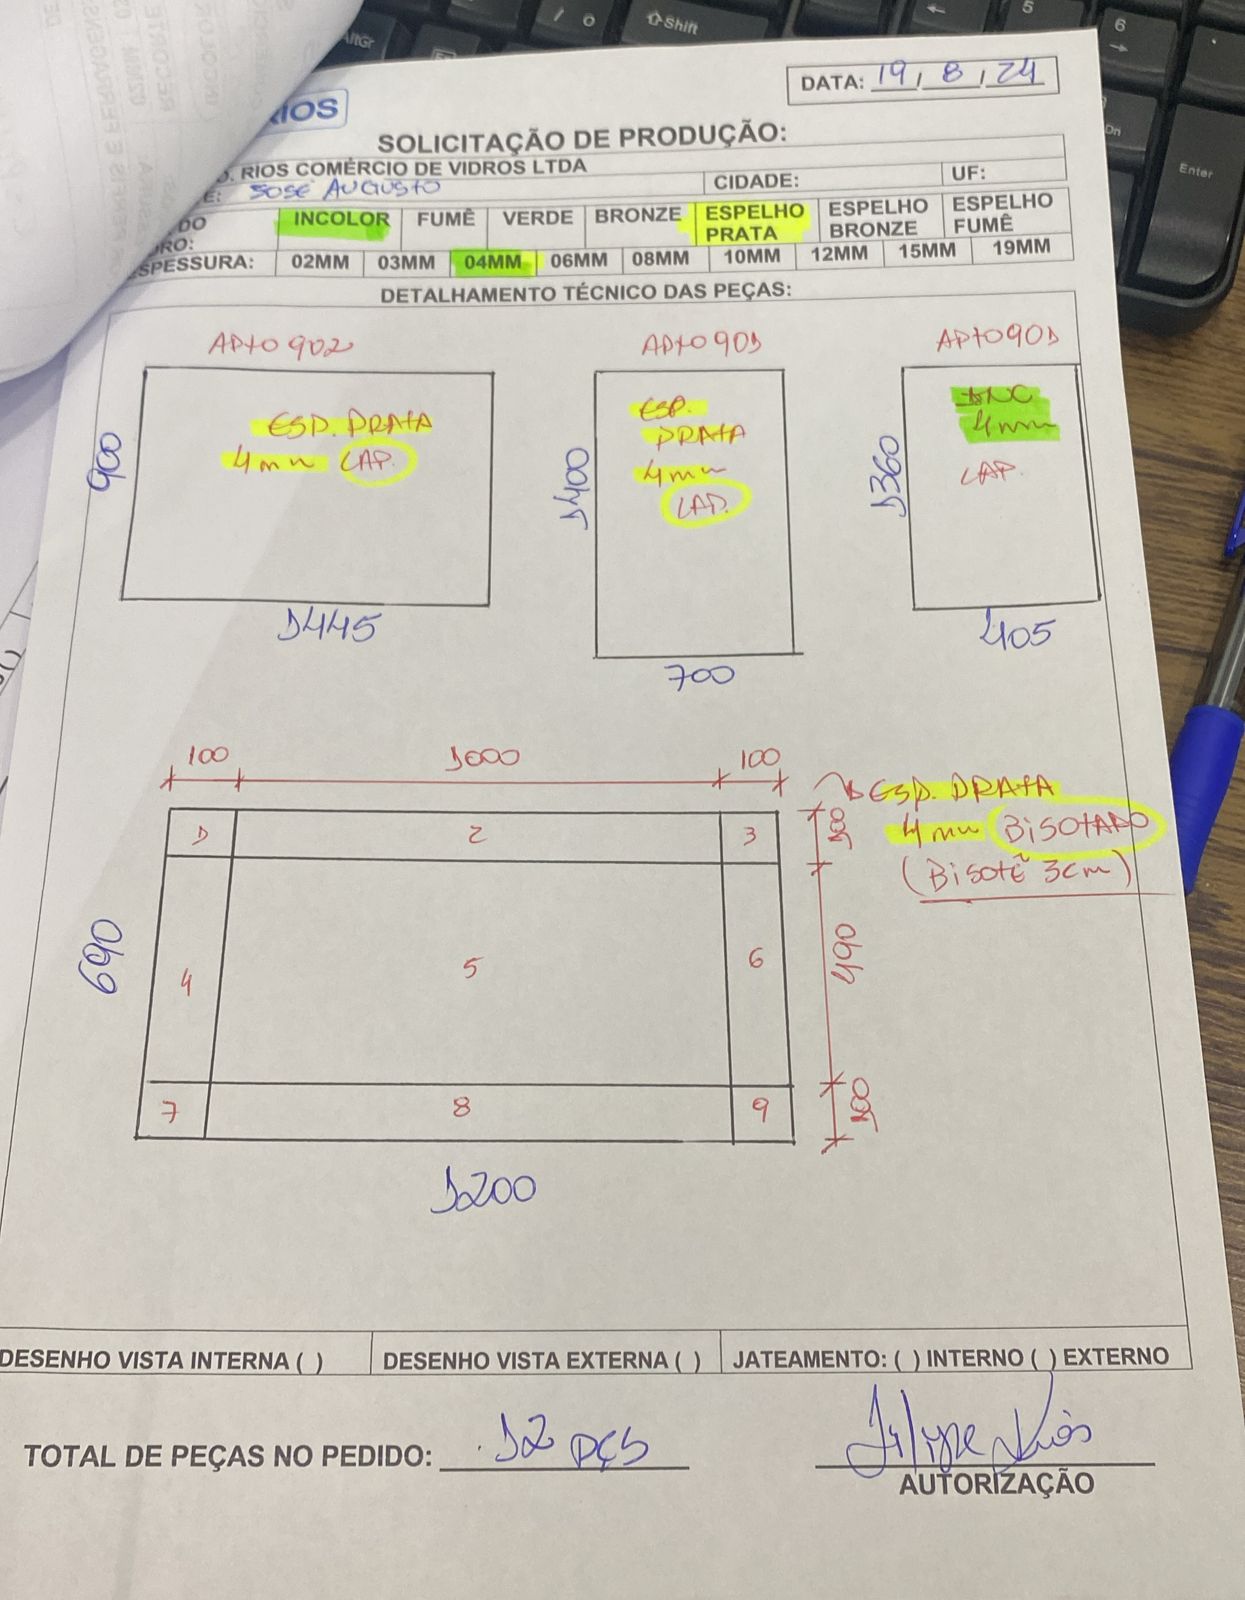 RIOS
DATA: 19/8/24
SOLICITAÇÃO DE PRODUÇÃO:
RIOS COMÉRCIO DE VIDROS LTDA
JOSÉ AUGUSTO CIDADE: UF:
DO INCOLOR FUMÊ VERDE BRONZE ESPELHO PRATA ESPELHO BRONZE ESPELHO FUMÊ
SPESSURA: 02MM 03MM 04MM 06MM 08MM 10MM 12MM 15MM 19MM
DETALHAMENTO TÉCNICO DAS PEÇAS:
APTO 902
ESP. PRATA
4mm LAP.
900
1445
APTO 901
ESP.
PRATA
4mm
LAP.
1400
700
APTO 901
INC
4mm
LAP.
1360
405
100 1000 100
ESP. PRATA
4mm BISOTADO
(Bisotê 3cm)
100
490
100
1 2 3
4 5 6
7 8 9
690
1200
DESENHO VISTA INTERNA ( ) DESENHO VISTA EXTERNA ( ) JATEAMENTO: ( ) INTERNO ( ) EXTERNO
TOTAL DE PEÇAS NO PEDIDO: 12 PÇS
Filipe Rios
AUTORIZAÇÃO
Shift
AltGr
Enter
5
6